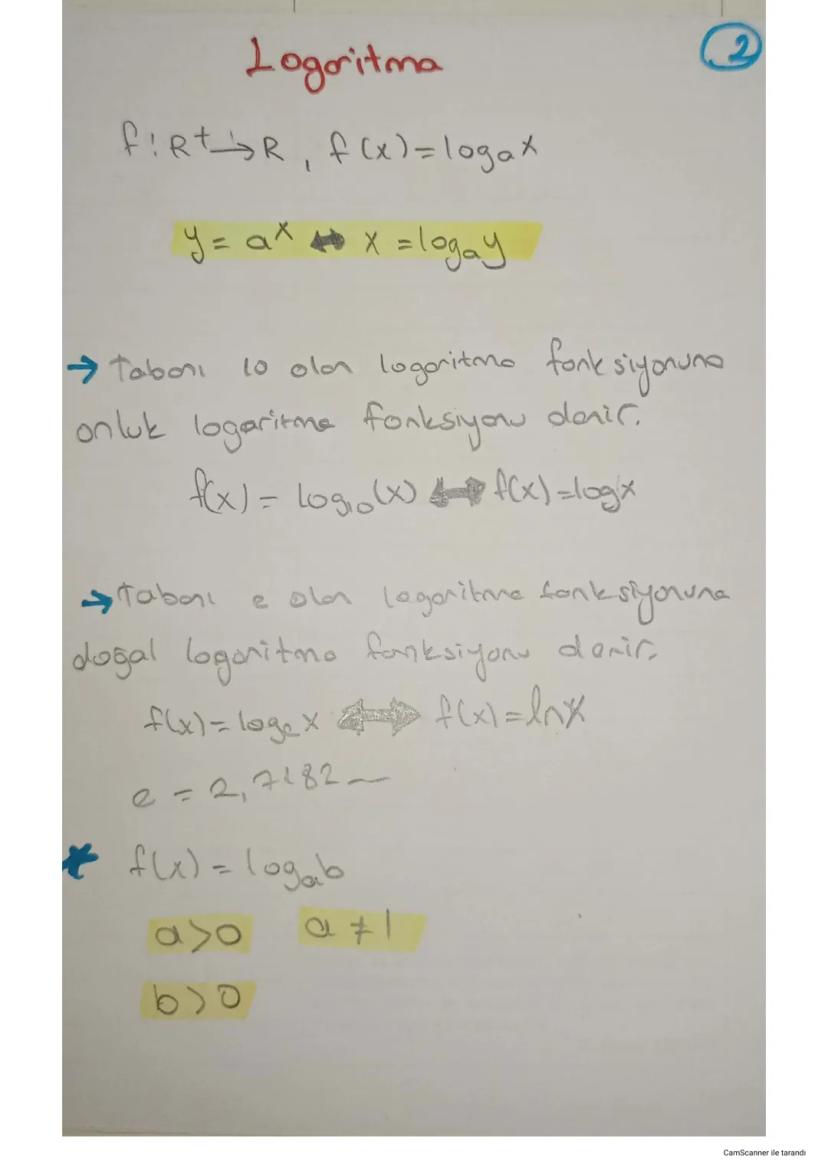 Logoritma
2
f: R⁺→R, f(x)=logₐx
y = aˣ ⇔ x = logₐy
→ Tabanı 10 olan logoritma fonksiyonuna
onluk logaritma fonksiyonu denir.
f(x) = log₁₀(x) ⇔ f(x)=logx
→ Tabanı e olan logaritma fonksiyonuna
doğal logoritma fonksiyonu denir.
f(x) = logₑx ⇔ f(x) = lnx
e = 2,7182...
* f(x) = logₐb
a>0 a≠1
b>0
CamScanner ile tarandı